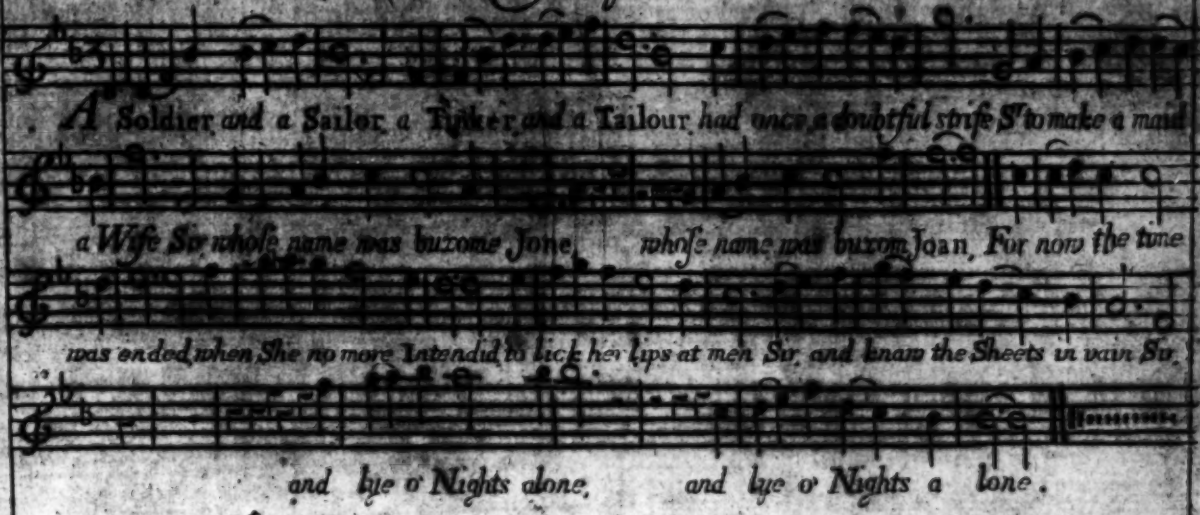 A Soldier and a Sailor a Tinker and a Tailour had once a doubtful strife Sr to make a maid
a Wife Sir whose name was buxome Jone, whose name was buxom Joan, For now the time
was ended, when She no more Intendid to lick her lips at men Sir, and knaw the Sheets in vain Sir,
and lye o' Nights alone, and lye o' Nights a lone.